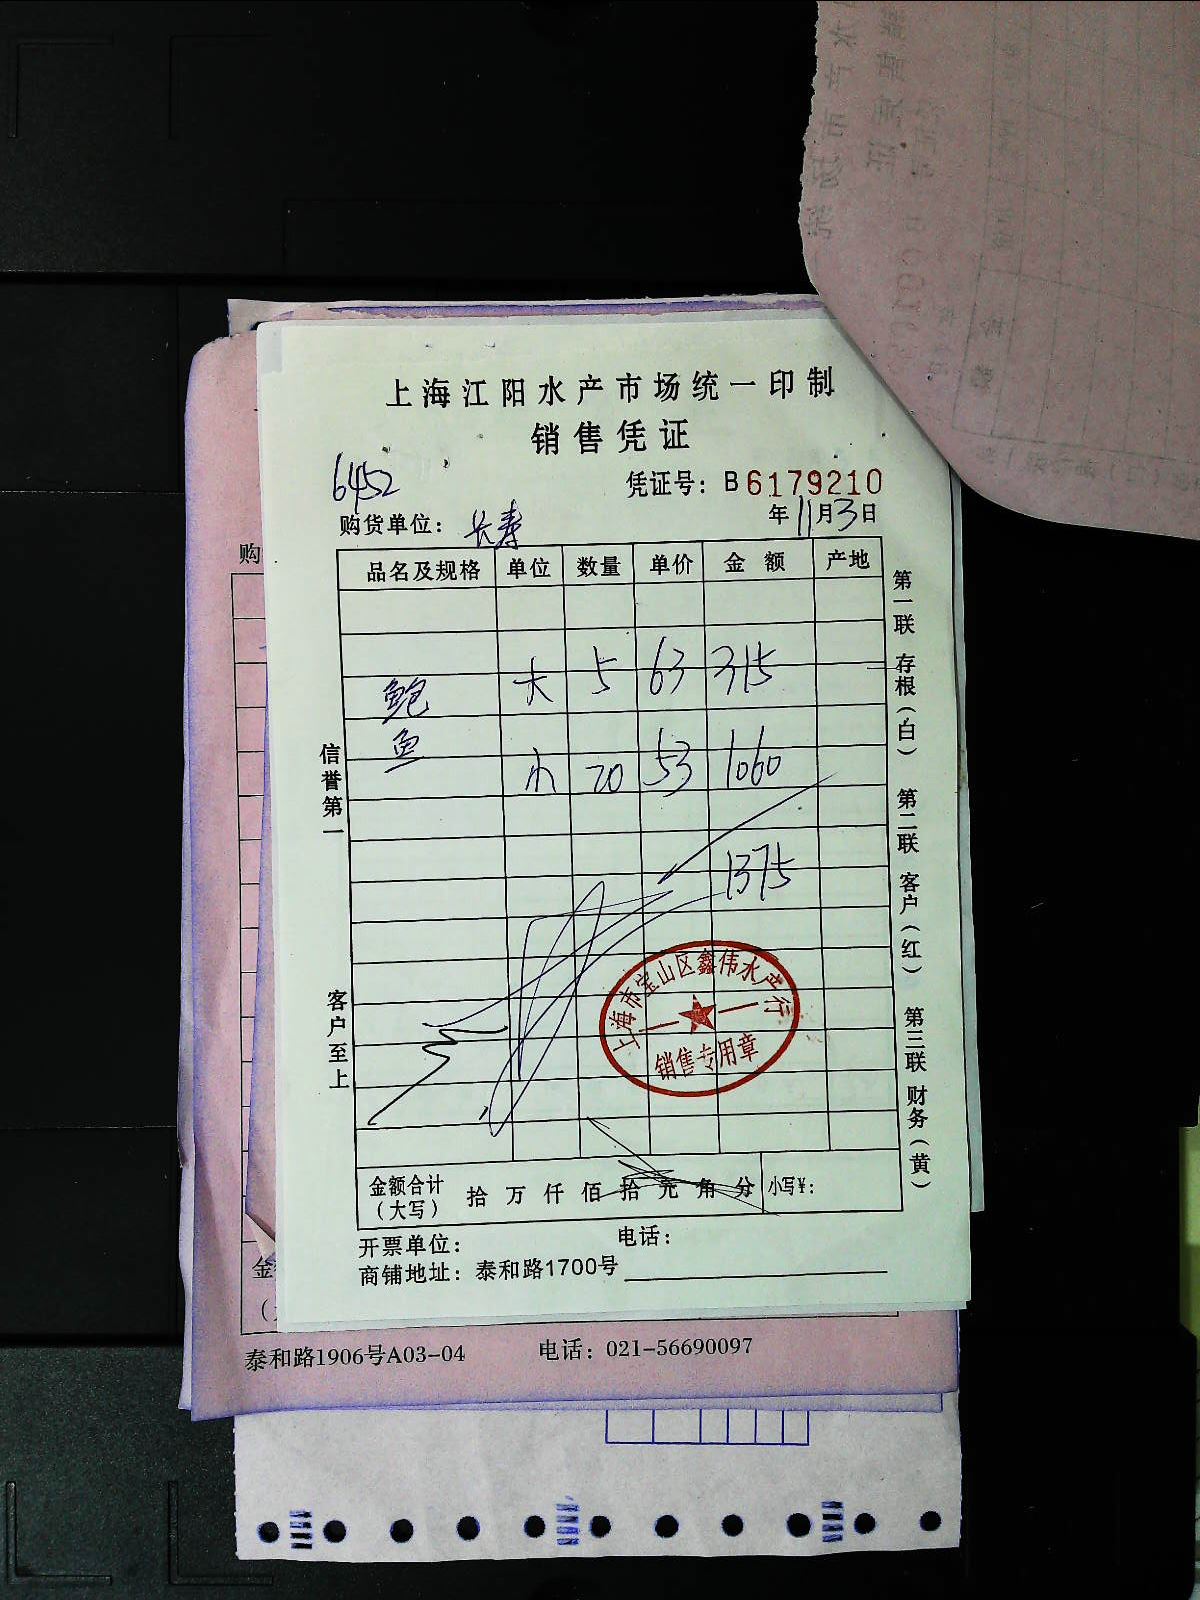 上海江阳水产市场统一印制
销售凭证
6452
凭证号：B 6179210
购货单位：长寿
年11月3日
品名及规格 单位 数量 单价 金额 产地
鲍鱼 大 5 63 315
小 20 53 1060
1375
上海市宝山区鑫伟水产行
销售专用章
金额合计（大写） 拾 万 仟 佰 拾 元 角 分 小写¥：
开票单位： 电话：
商铺地址：泰和路1700号
信誉第一
客户至上
第一联 存根（白）
第二联 客户（红）
第三联 财务（黄）
购
金
泰和路1906号A03-04 电话：021-56690097